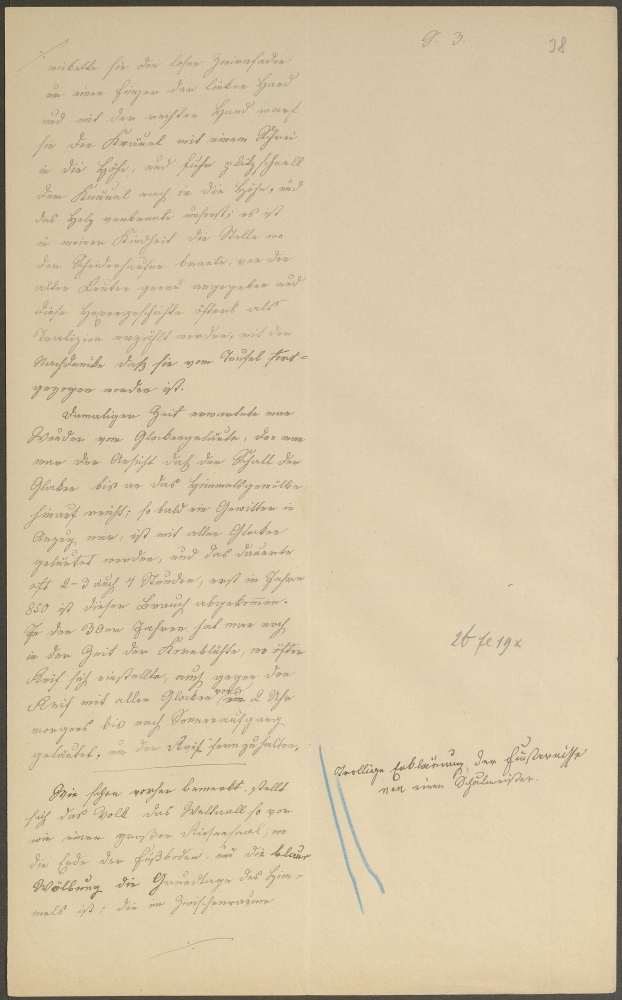 G. 3. 38
wickelte sie den losen Zwirnfaden
um einen Finger der linken Hand
und mit der rechten Hand warf
sie den Knäuel mit einem Schrei
in die Höhe, und fuhr plötzlich schnell
dem Knäuel nach in die Höhe, und
das Holz verbrannte unterst; es ist
in meiner Kindheit die Stelle wo
der Scheiterhaufen brante, von den
alten Leuten genau angegeben und
diese Hexengeschichte öfters als
Tradizion erzählt worden, mit dem
Nachdrucke daß sie vom Teufel fort-
gezogen worden ist.
Damaliger Zeit erwartete man
Wunder vom Glockengeläute, den man
war der Ansicht daß der Schall der
Glocken bis an das Himmelsgewölbe
hinauf reicht; so bald ein Gewitter in
Anzug war, ist mit allen Glocken
geläutet worden, und das dauerte
oft 2-3 auch 4 Stunden, erst in Jahre
850 ist dieser Brauch abgekommen.
In den 30er Jahren hat man noch
in der Zeit der Kornblühte, wo öfter
Reif sich einstellte, auch gegen den
Reif mit allen Glocken von 2 Uhr
morgens bis nach Sonnenaufgang
geläutet, um den Reif fernzuhalten.
Wie schon vorher bemerkt, stellt
sich das Volk das Weltall so vor
wie einen großen Riesensaal, wo
die Erde der Fußboden und die blaue
Wölbung die Grundlage des Him-
mels ist; die im Zwischenraume
Drollige Erklärung der Finsternisse
von einem Schulmeister.